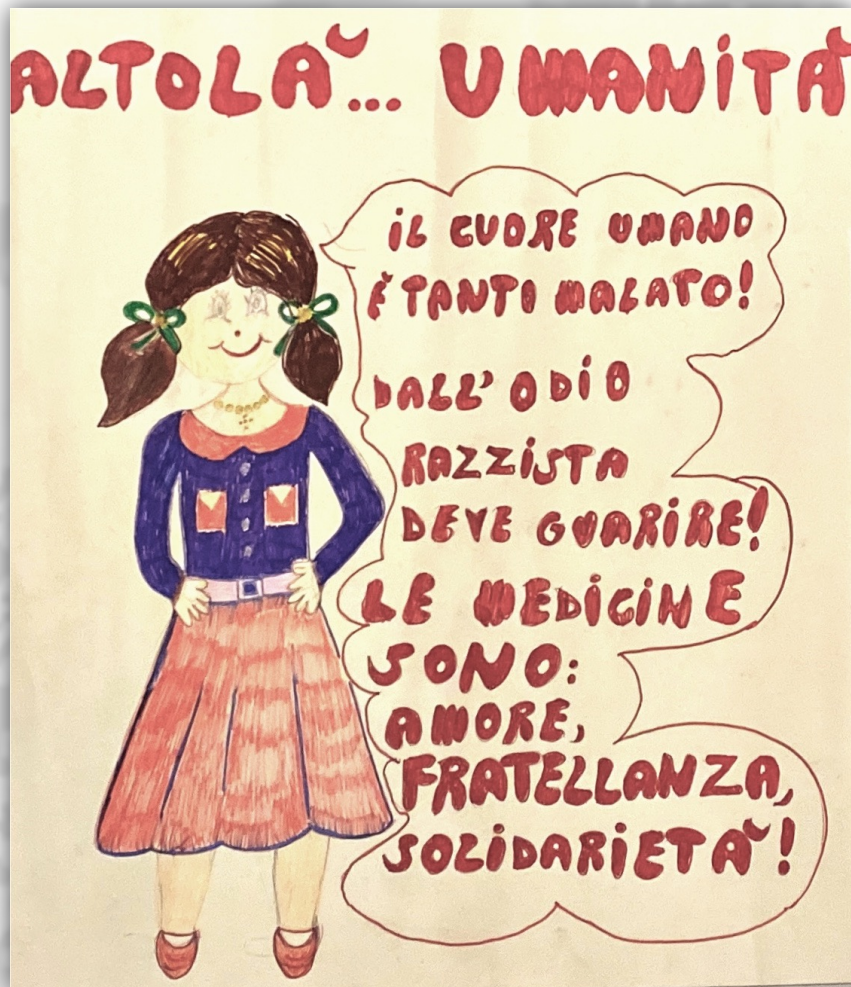 ALTOLÀ... UMANITÀ
IL CUORE UMANO
È TANTI MALATO!
DALL'ODIO
RAZZISTA
DEVE GUARIRE!
LE MEDICINE
SONO:
AMORE,
FRATELLANZA,
SOLIDARIETÀ!